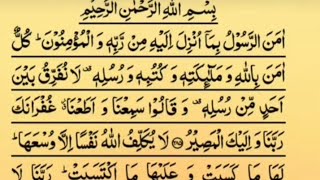 بِسْمِ اللّٰهِ الرَّحْمٰنِ الرَّحِیْمِ
اٰمَنَ الرَّسُوْلُ بِمَاۤ اُنْزِلَ اِلَیْهِ مِنْ رَّبِّهٖ وَ الْمُؤْمِنُوْنَؕ كُلٌّ
اٰمَنَ بِاللّٰهِ وَ مَلٰٓىِٕكَتِهٖ وَ كُتُبِهٖ وَ رُسُلِهٖ۫ لَا نُفَرِّقُ بَیْنَ
اَحَدٍ مِّنْ رُّسُلِهٖ۫ وَ قَالُوْا سَمِعْنَا وَ اَطَعْنَا٘ غُفْرَانَكَ
رَبَّنَا وَ اِلَیْكَ الْمَصِیْرُ ۝۲۸۵ لَا یُكَلِّفُ اللّٰهُ نَفْسًا اِلَّا وُسْعَهَاؕ
لَهَا مَا كَسَبَتْ وَ عَلَیْهَا مَا اكْتَسَبَتْؕ رَبَّنَا لَا